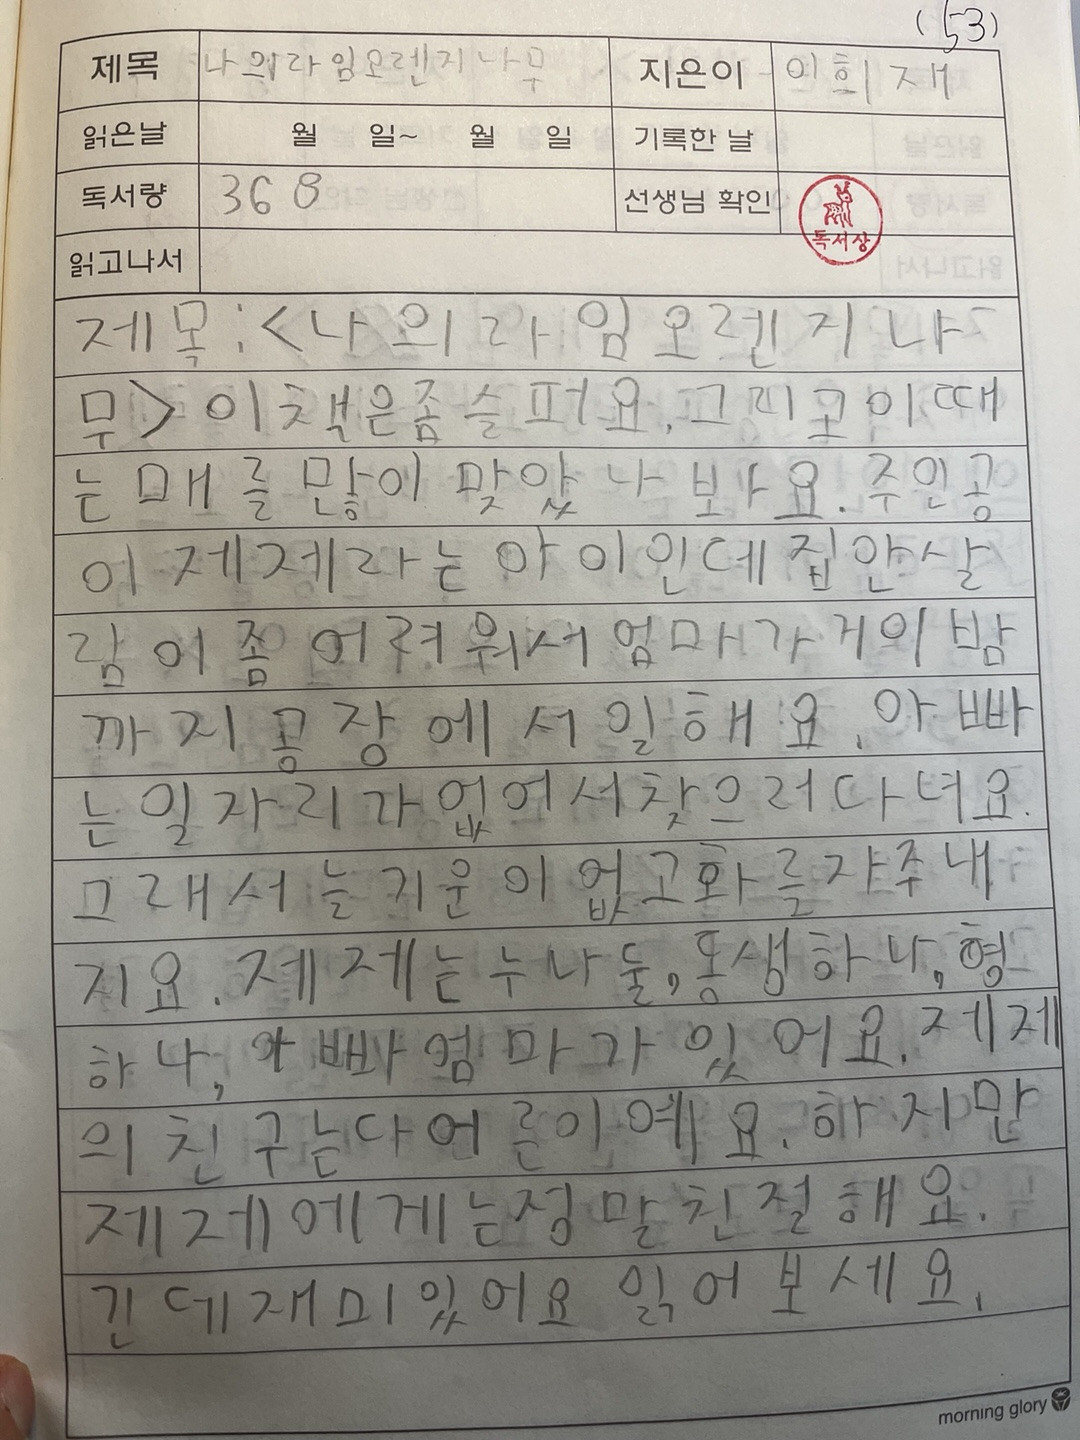 (53)
제목 나의라임오렌지나무 지은이 이희재
읽은날 월 일~ 월 일 기록한 날
독서량 368 선생님 확인 독서상
읽고나서
제목:<나의라임오렌지나
무>이책은좀슬퍼요.그리고이때
는매를많이맞았나봐요.주인공
이제제라는아이인데집안사
람이좀어려워서엄마가거의밤
까지공장에서일해요.아빠
는일자리가없어서찾으러다녀요.
그래서늘기운이없고화를자주내
지요.제제는누나둘,동생하나,형
하나,아빠엄마가있어요.제제
의친구는다어른이예요.하지만
제제에게는정말친절해요.
긴데재미있어요 읽어보세요.
morning glory